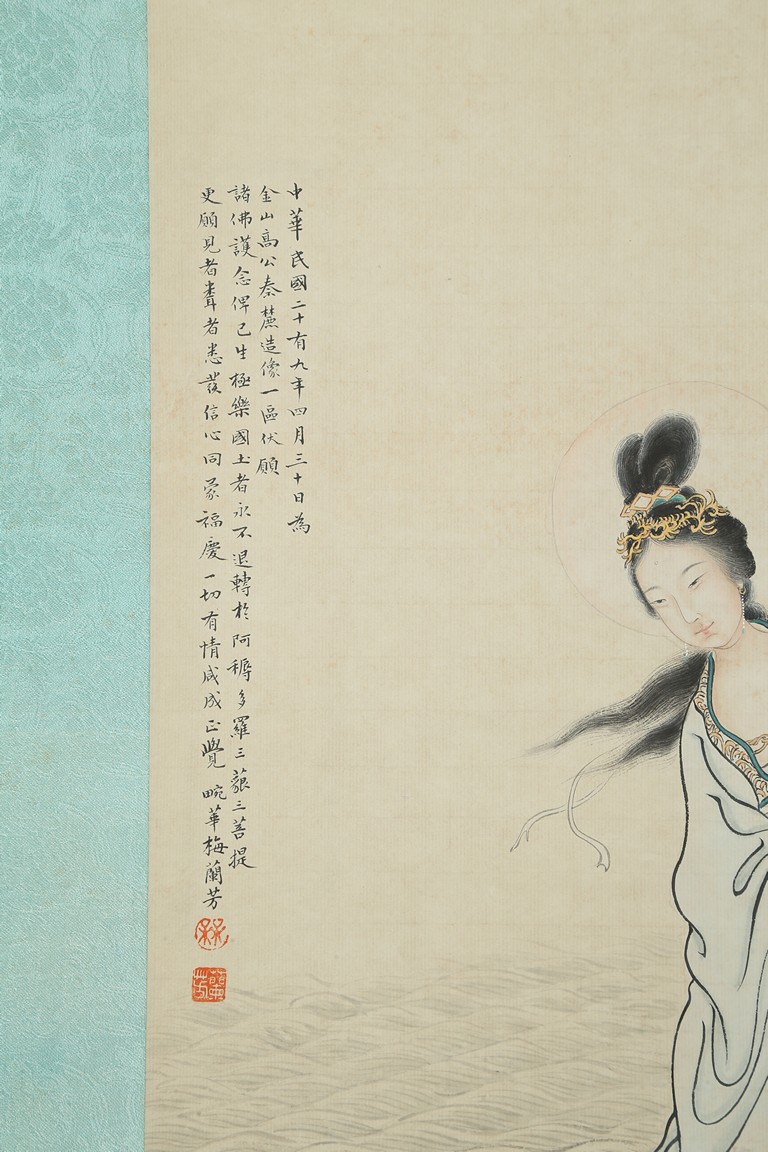 中華民國二十有九年四月三十日為
金山高公秦麓造像一區伏願
諸佛護念俾已生極樂國土者永不退轉於阿耨多羅三藐三菩提
更願見者聞者悉發信心同蒙福慶一切有情咸成正覺 畹華梅蘭芳
蘭芳